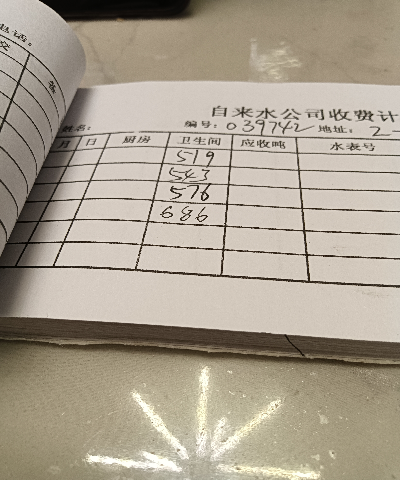 电话:
自来水公司收费计
姓名: 编号: 039742 地址: 2-
月 日 厨房 卫生间 应收吨 水表号
519
543
576
686